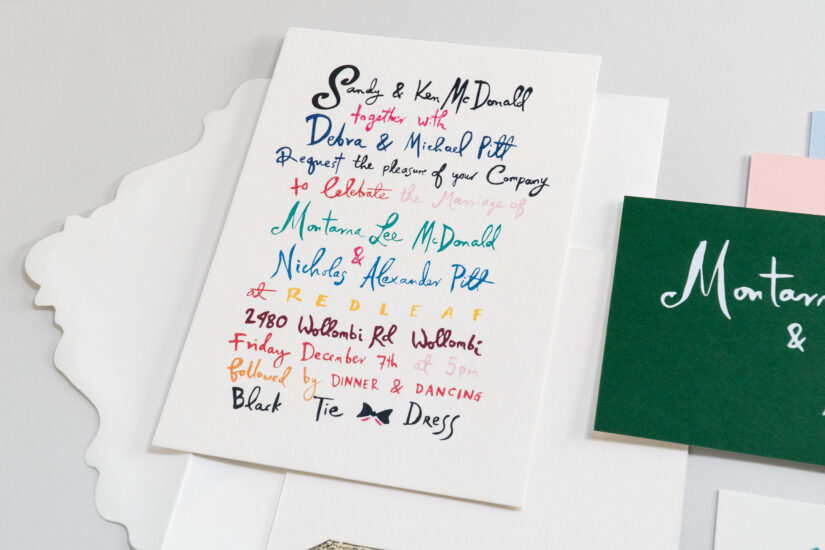 Sandy & Ken McDonald
together with
Debra & Michael Pitt
Request the pleasure of your Company
to Celebrate the Marriage of
Montarna Lee McDonald
&
Nicholas Alexander Pitt
at REDLEAF
2980 Wollombi Rd Wollombi
Friday December 7th at 5pm
followed by DINNER & DANCING
Black Tie Dress
Montarn
&